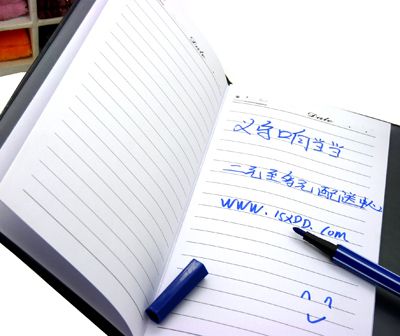 Date
Date
义字响当当
二元至多元配送中心
www.15xDD.com